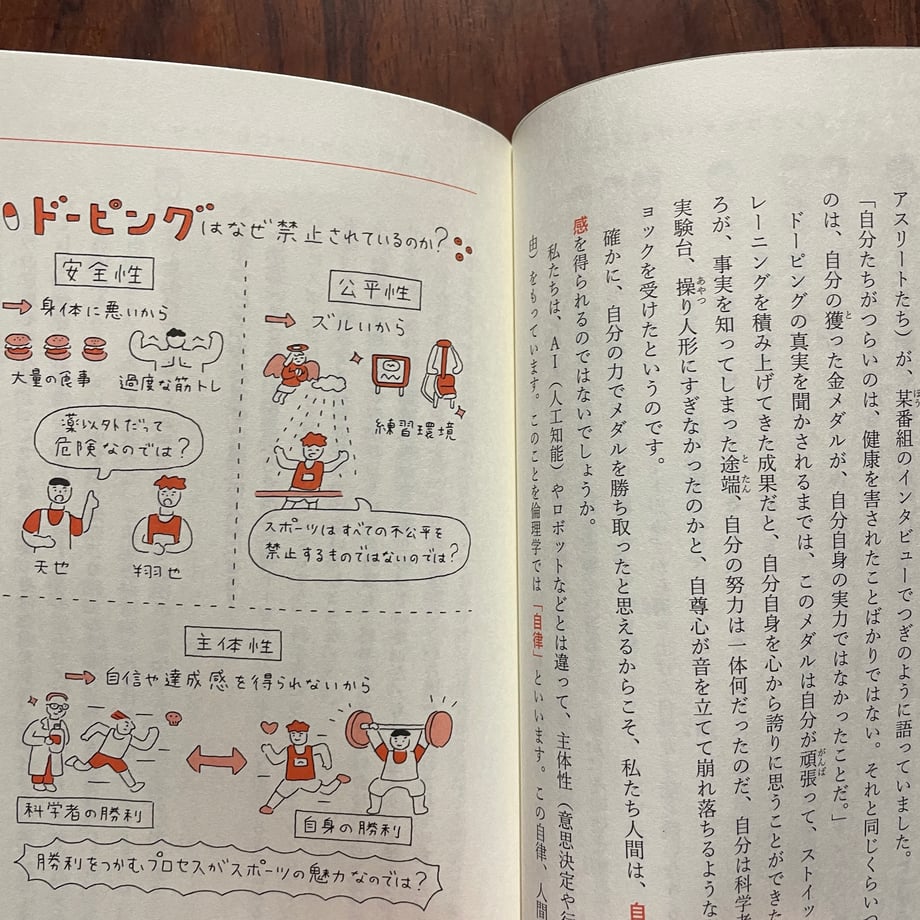 アスリートたち）が、某番組のインタビューでつぎのように語っていました。
「自分たちがつらいのは、健康を害されたことばかりではない。それと同じくらいつ
のは、自分の獲った金メダルが、自分自身の実力ではなかったことだ。」
ドーピングの真実を聞かされるまでは、このメダルは自分が頑張って、ストイッ
レーニングを積み上げてきた成果だと、自分自身を心から誇りに思うことができた
ろが、事実を知ってしまった途端、自分の努力は一体何だったのだ、自分は科学者
実験台、操り人形にすぎなかったのかと、自尊心が音を立てて崩れ落ちるような
ョックを受けたというのです。
確かに、自分の力でメダルを勝ち取ったと思えるからこそ、私たち人間は、自
感を得られるのではないでしょうか。
私たちは、AI（人工知能）やロボットなどとは違って、主体性（意思決定や行
由）をもっています。このことを倫理学では「自律」といいます。この自律、人間
ドーピングはなぜ禁止されているのか?
安全性
→身体に悪いから
大量の食事
過度な筋トレ
薬以外だって
危険なのでは?
天也
翔也
公平性
→ズルいから
練習環境
スポーツはすべての不公平を
禁止するものではないのでは?
主体性
→自信や達成感を得られないから
科学者の勝利
自身の勝利
勝利をつかむプロセスがスポーツの魅力なのでは?